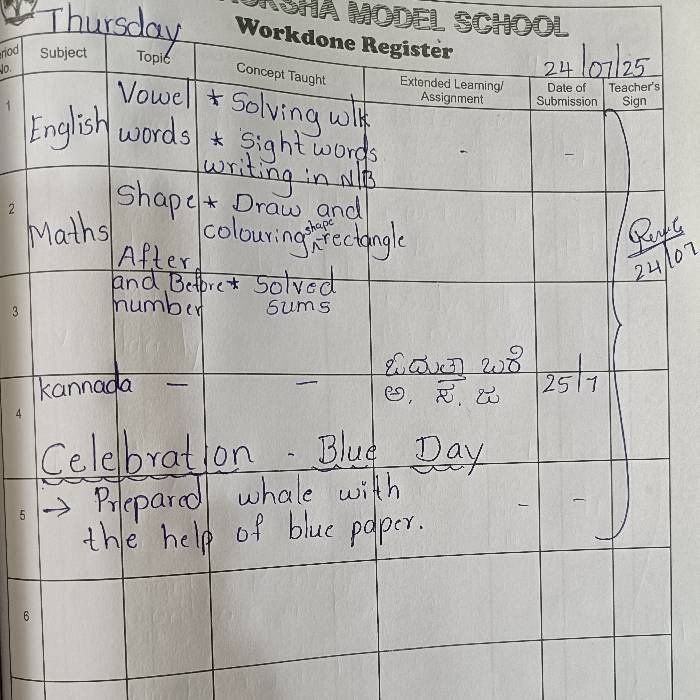 MODEL SCHOOL
Thursday
Workdone Register
24/07/25
Period No. Subject Topic Concept Taught Extended Learning/ Assignment Date of Submission Teacher's Sign
1 English Vowel words * Solving w/k
* Sight words writing in N/B - -
2 Maths Shape * Draw and colouring shape rectangle
After and Before number * Solved sums
24/07
3
4 Kannada - - ಓದುತ್ತಾ ಬರೆ
ಅ, ಸ, ಜ 25/7
Celebration - Blue Day
5 → Prepared whale with
the help of blue paper. - -
6